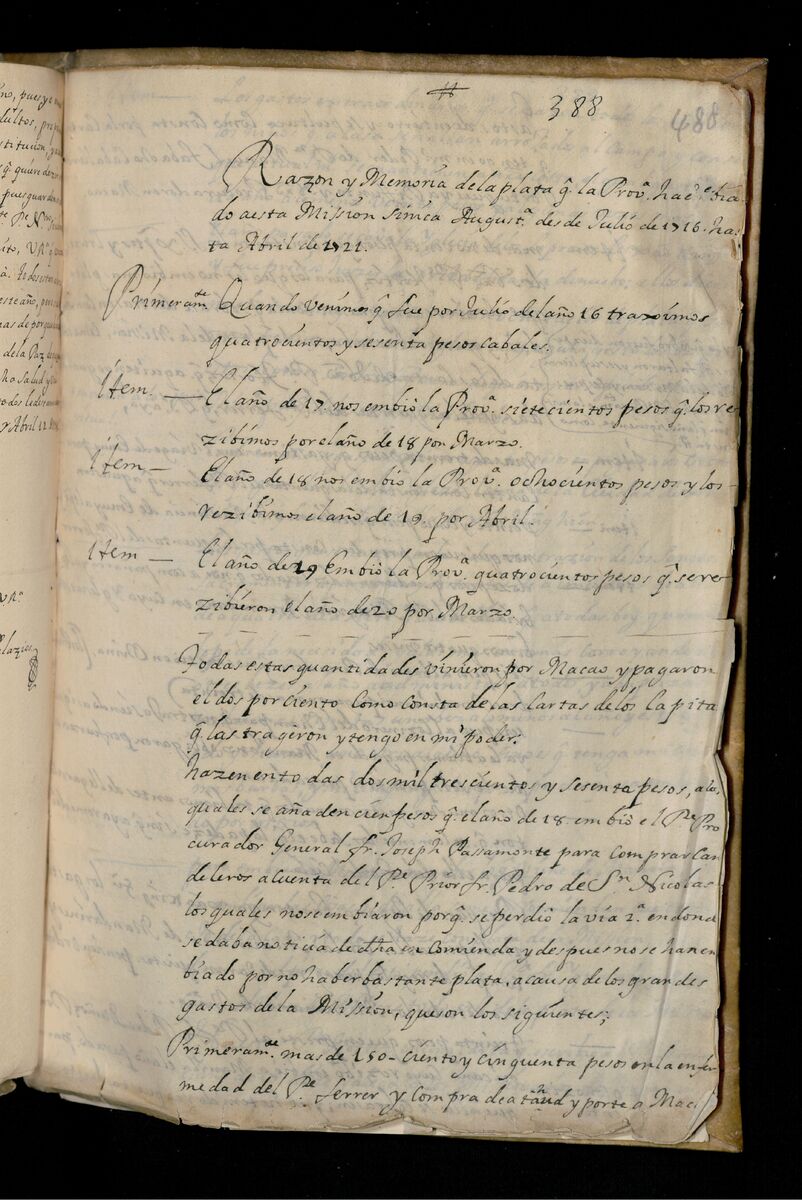 388
488
Razon y Memoria de la plata q̃ la Provª. ha
do a esta Mission Sinica Augustª. desde Julio de 1716. has
ta Abril de 1721.
Primeramte. Quando venimos q̃ fue por Julio del año 16 traximos
quatrocientos y sesenta pesos cabales.
Item — El año de 17. nos embiò la Provª. sietecientos pesos q̃ los re
zibimos por el año de 18 por Marzo.
Item — El año de 18 nos embiò la Provª. ochocientos pesos y los
rezibimos el año de 19. por Abril.
Item — El año de 19 Embiò la Provª. quatrocientos pesos q̃ se re
zibieron el año de 20 por Marzo.
Todas estas quantidades vinieron por Macao y pagaron
el dos por ciento como consta de las Cartas de los Capita
q̃ las trageron y tengo en mi poder.
hazen en todas dos mil trescientos y sesenta pesos, a los
quales se añaden cien pesos q̃ el año de 18. embiò el Pe. Pro
curador General fr. Joseph Passamonte para comprar Can
deleros a cuenta del Pe. Prior fr. Pedro de Sn. Nicolas
los quales no se embiaron porq̃ se perdiò la via 2ª. en donde
se daba noticia de dha encomienda y despues no se han en
biado por no haber bastante plata, a causa de los grandes
gastos de la Mission, que son los siguientes;
Primeramte. mas de 150 - ciento y cinquenta pesos en la enfer
medad del Pe. Ferrer y compra de ataud y porte a Mac